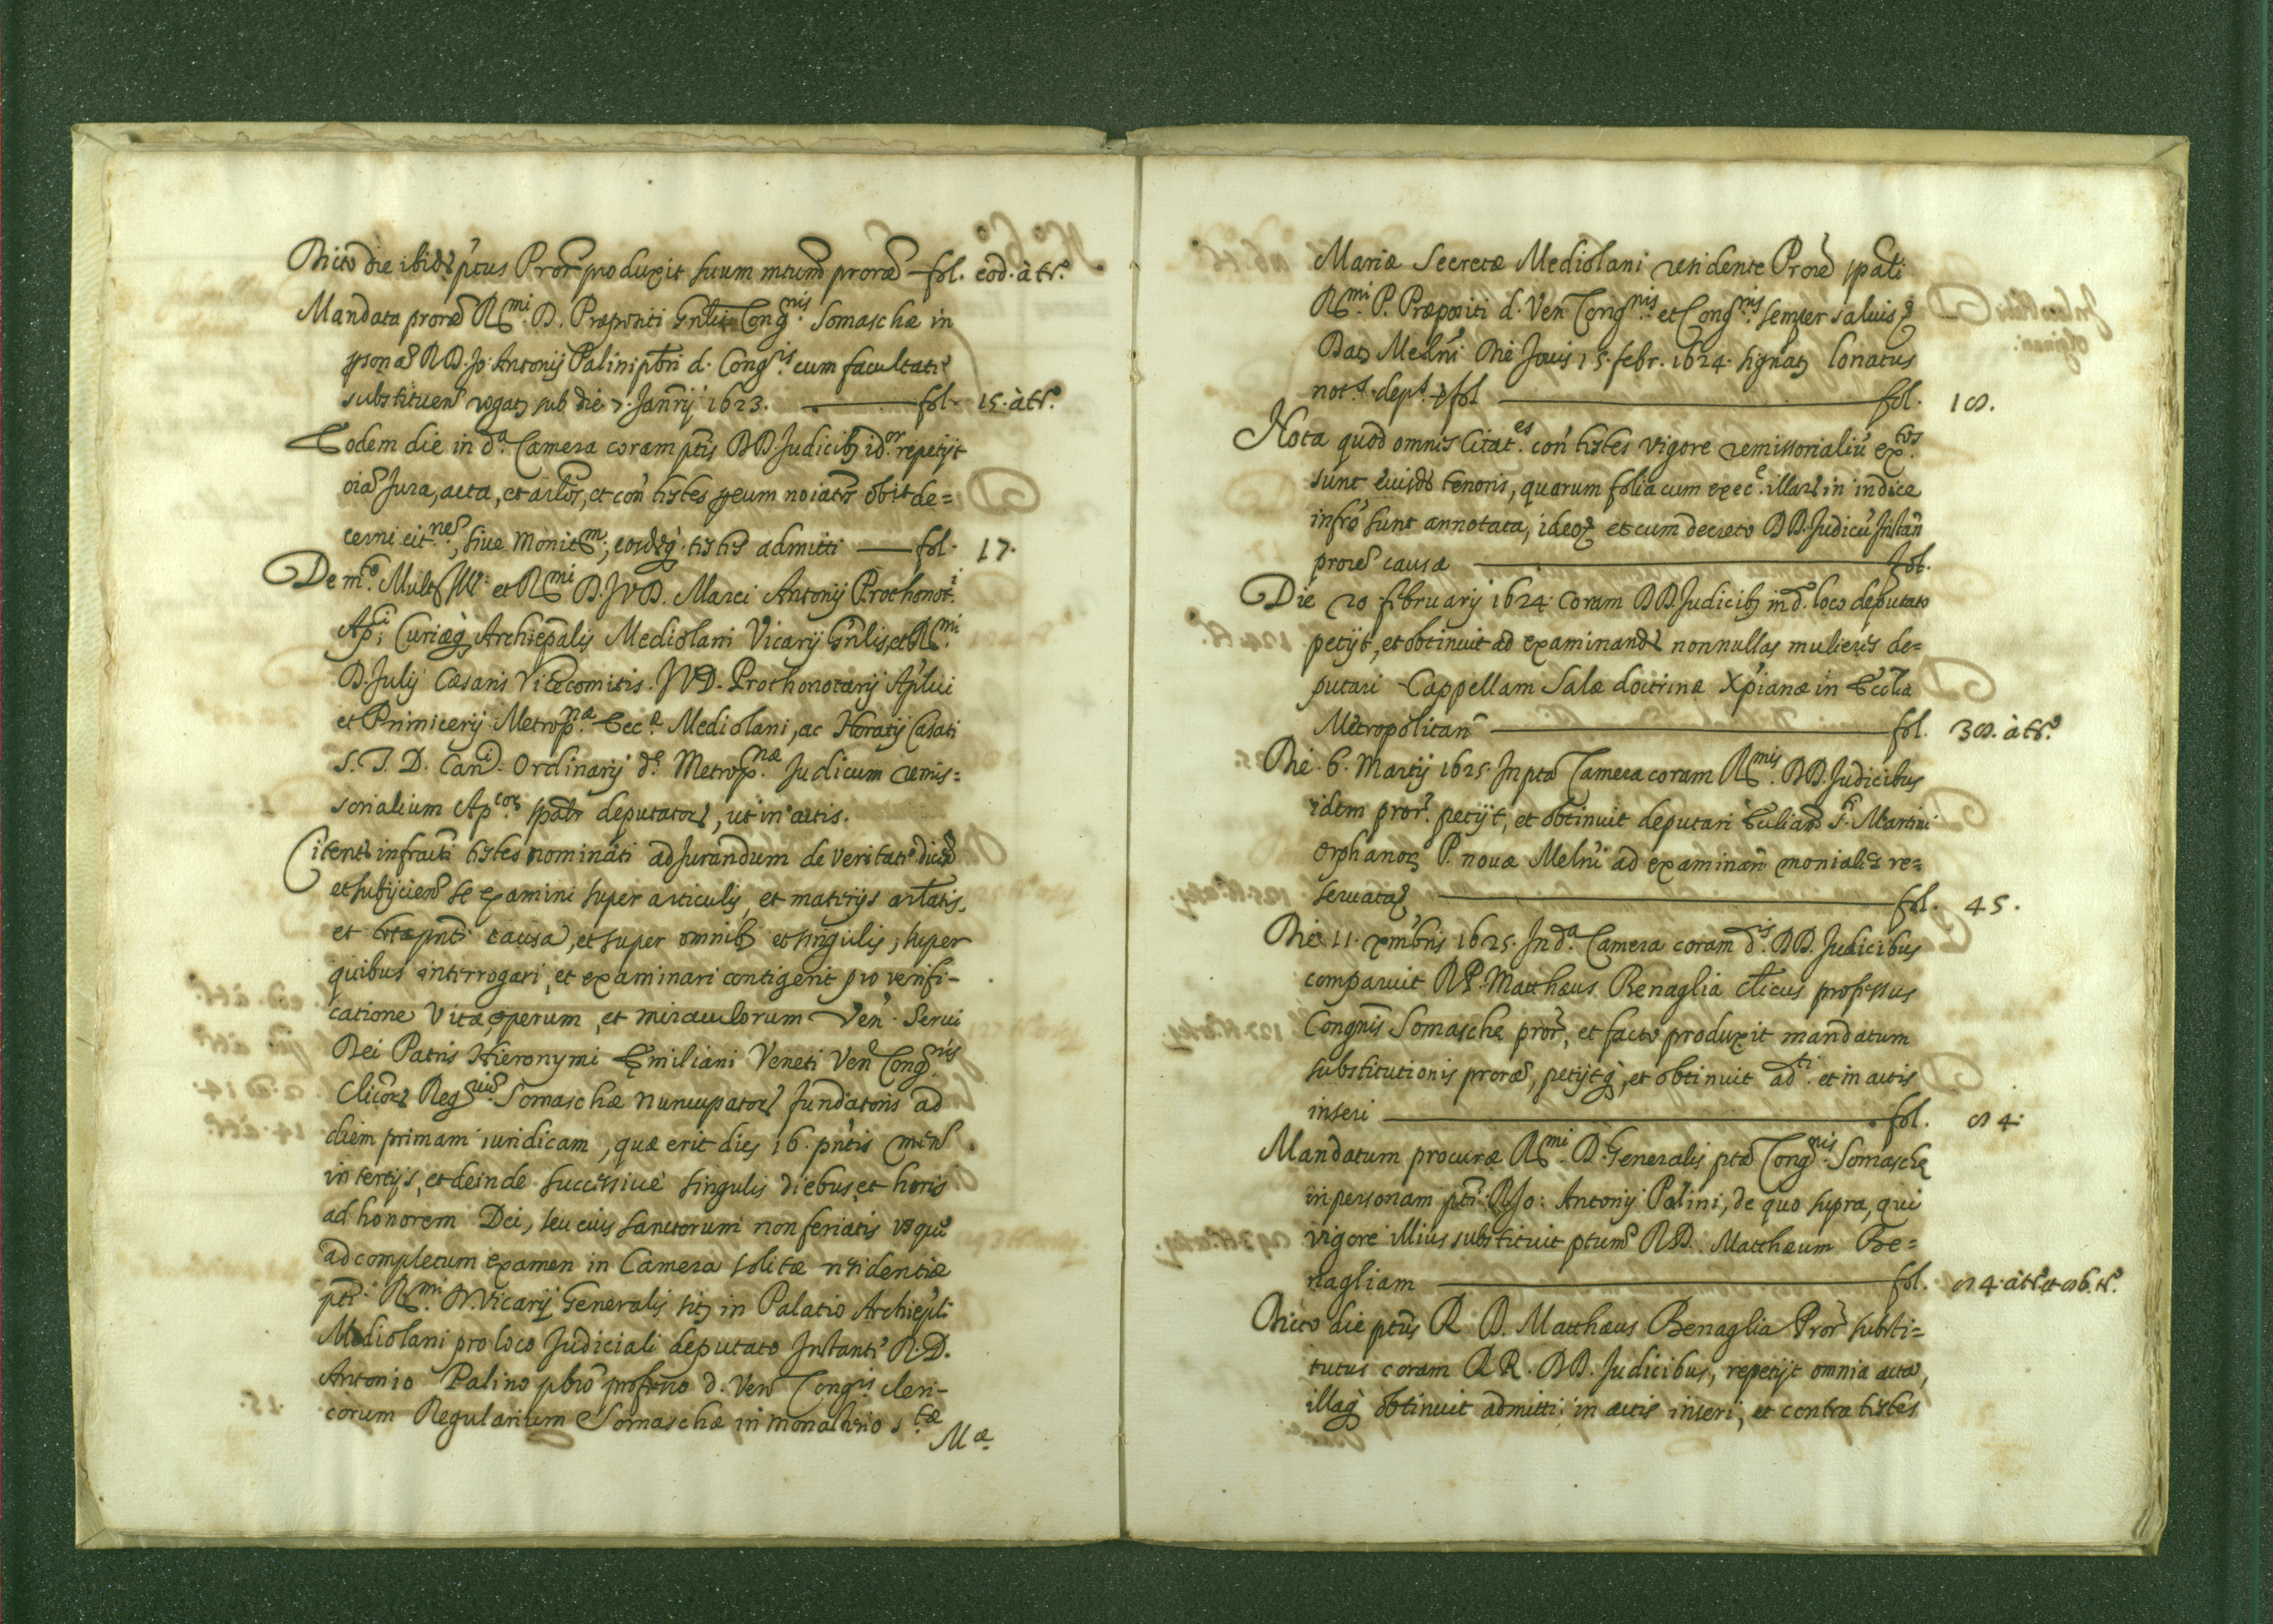 Dicto die ibid. ptus Pror produxit suum mtum prorae fol. eod. à tr.º
Mandata prorae R.mi D. Praepositi Gnlis Cong.nis Somaschae in
psona R D. Jo: Antonij Palini pbri d. Cong.is cum facultate
substituen rogat sub die 7. Janrij 1623. fol. 15. à tr.º
Eodem die in d.a Camera coram ptis DD Judicib; id. pror repetijt
oia Jura, acta, et artlos, et con testes p eum noiatos obtinuit de=
cerni cit.nes, sive monit.m, eosdq; testes admitti fol. 17.
De m.to Mult. Ill. et R.mi D. JVD. Marci Antonij Prothonot.i
Ap.ci Curiaeq; Archiepalis Mediolani Vicarij Gnlis, et R.mi
D. Julij Caesaris Vicecomitis JVD. Prothonotarij Aplici
et Primicerij Metrop.nae Ecc.ae Mediolani, ac Horatij Casati
S. T. D. Can.ci Ordinarij d.ae Metrop.nae Judicum remis=
sorialium Ap.cor spalr deputator, ut in actis.
Citent infracti testes nominati ad Jurandum de veritate dicen
et subijcien se examini super articulis, et materijs artlatis,
et causa, et super omnib; et singulis, super
quibus interrogari, et examinari contigerit pro verifi-
catione Vitae, operum, et miraculorum Ven. Servi
Dei Patris Hieronymi Emiliani Veneti Ven Cong.nis
Clicor Reg.rium Somaschae nuncupator fundatoris ad
diem primam iuridicam, quae erit dies 16. pntis mens
in tertijs, et deinde successivè singulis diebus, et horis
ad honorem Dei, seu eius Sanctorum non feriatis usque
ad completum examen in Camera solitae residentiae
pti R.mi D. Vicarij Generalis sit; in Palatio Archiepli
Mediolani pro loco Judiciali deputato Instante R. D.
Antonio Palino pbro professo d. Ven Cong.is cleri-
corum Regularium Somaschae in monasterio S.tae
M.ae
Mariae Secretae Mediolani residente Prore spali
R.mi P. Praepositi d. Ven Cong.nis et Cong.nis semper salvis
Dat; Melni Die Jovis 15. febr. 1624. signat; Lonatus
not.s dept.s fol fol. 18.
Nota quod omnes Citat.es con testes vigore remissorialiu ex.tos
sunt eiusd tenoris, quarum folia cum exec.e illar in indice
infro sunt annotata, ideoq; et cum decreto DD. Judicu Instan
prore causae fol.
Die 20 februarij 1624. Coram DD. Judicib; in d.o loco deputato
petijt, et obtinuit ad examinand nonnullas mulieres de=
putari Cappellam Salae doctrinae Xpianae in Ecclia
Metropolitan fol. 38. à tr.º
Die 6. Martij 1625. In pta Camera coram R.mis DD. Judicibus
idem pror. petijt, et obtinuit deputari Eccliam S. Martini
Orphanor; P. novae Melni ad examinan moniales re=
servatas fol. 45.
Die 11. xmbris 1625. In d.a Camera coram d.is DD. Judicibus
comparuit R.P. Matthaeus Benaglia clicus professus
Congnis Somaschę pror, et facto produxit mandatum
substitutionis prorae, petijtq;, et obtinuit ad.ti et in actis
inseri fol. 84.
Mandatum procurae R.mi D. Generalis ptae Cong.nis Somaschę
in personam pti R Jo: Antonij Palini, de quo supra, qui
vigore illius substituit ptum R D. Matthaeum Be=
nagliam fol. 84. à tr.º et 86. tr.º
Dicto die ptus R D. Matthaeus Benaglia Pror substi=
tutus coram R R. DD. Judicibus, repetijt omnia acta,
illaq; obtinuit admitti; in actis inseri, et contra testes